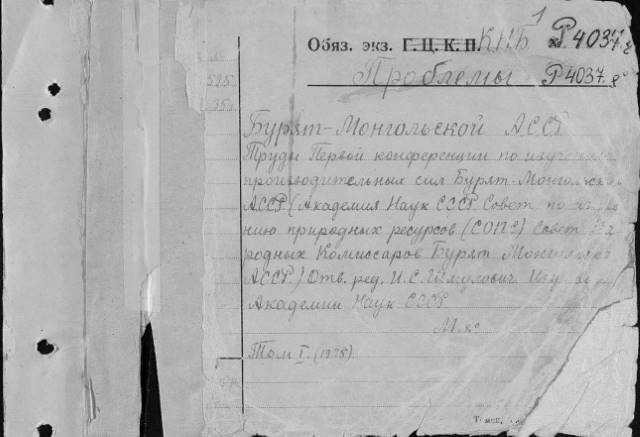 1
Обяз. экз. Г.Ц.К.П. КПБ Р4037
Проблемы Р4037
525
35
Бурят-Монгольской АССР
Труды Первой конференции по изучению
производительных сил Бурят-Монгольской
АССР (Академия Наук СССР Совет по
нию природных ресурсов (СОПС) Совет На
родных Комиссаров Бурят Монгольской
АССР) Отв. ред. И.С.
Академии Наук СССР
М
Том I. (1935)